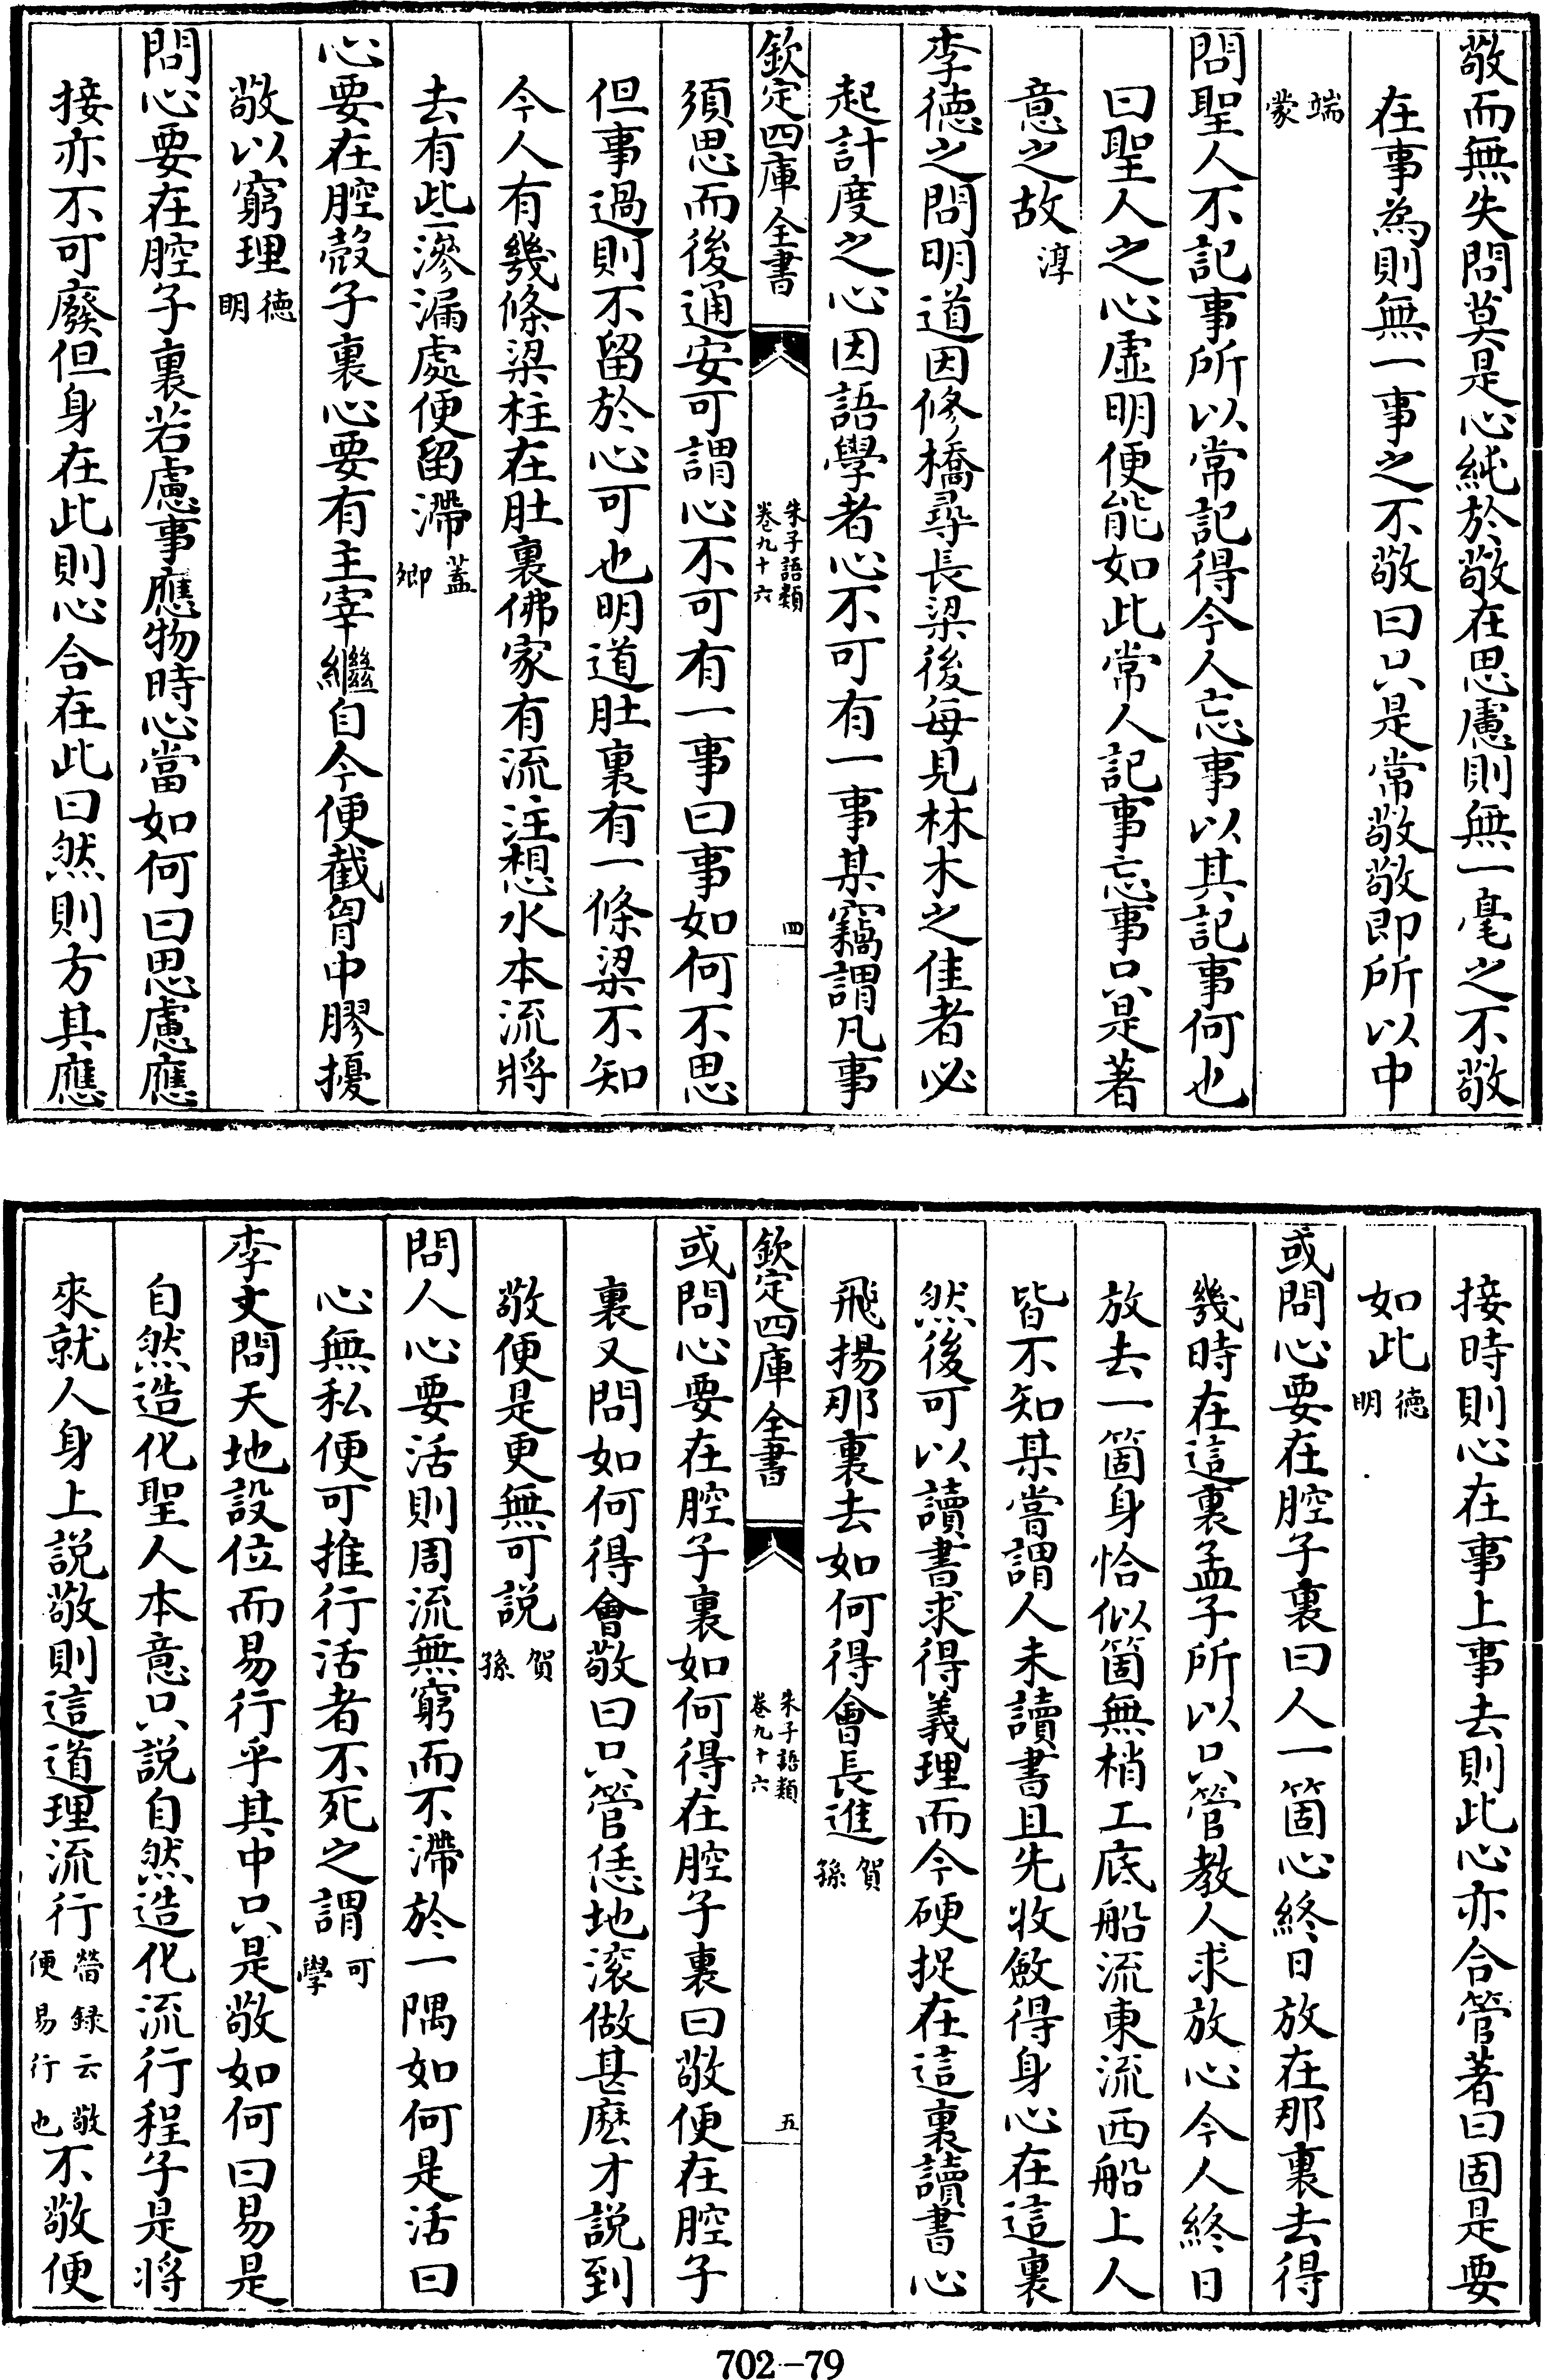 敬而無失問莫是心純於敬在思慮則無一毫之不敬
在事為則無一事之不敬曰只是常敬敬即所以中
端蒙
問聖人不記事所以常記得今人忘事以其記事何也
曰聖人之心虛明便能如此常人記事忘事只是著
意之故淳
李德之問明道因修橋尋長梁後每見林木之佳者必
起計度之心因語學者心不可有一事某竊謂凡事
欽定四庫全書
朱子語類
卷九十六
四
須思而後通安可謂心不可有一事曰事如何不思
但事過則不留於心可也明道肚裏有一條梁不知
今人有幾條梁柱在肚裏佛家有流注想水本流將
去有些滲漏處便留滯蓋卿
心要在腔殼子裏心要有主宰繼自今便截胷中膠擾
敬以窮理德明
問心要在腔子裏若慮事應物時心當如何曰思慮應
接亦不可廢但身在此則心合在此曰然則方其應
接時則心在事上事去則此心亦合管著曰固是要
如此德明
或問心要在腔子裏曰人一箇心終日放在那裏去得
幾時在這裏孟子所以只管教人求放心今人終日
放去一箇身恰似箇無梢工底船流東流西船上人
皆不知某嘗謂人未讀書且先收斂得身心在這裏
然後可以讀書求得義理而今硬捉在這裏讀書心
飛揚那裏去如何得會長進賀孫
欽定四庫全書
朱子語類
卷九十六
五
或問心要在腔子裏如何得在腔子裏曰敬便在腔子
裏又問如何得會敬曰只管恁地滚做甚麽才說到
敬便是更無可說賀孫
問人心要活則周流無窮而不滯於一隅如何是活曰
心無私便可推行活者不死之謂可學
李丈問天地設位而易行乎其中只是敬如何曰易是
自然造化聖人本意只說自然造化流行程子是將
來就人身上說敬則這道理流行㽦録云敬便易行也不敬便
702-79